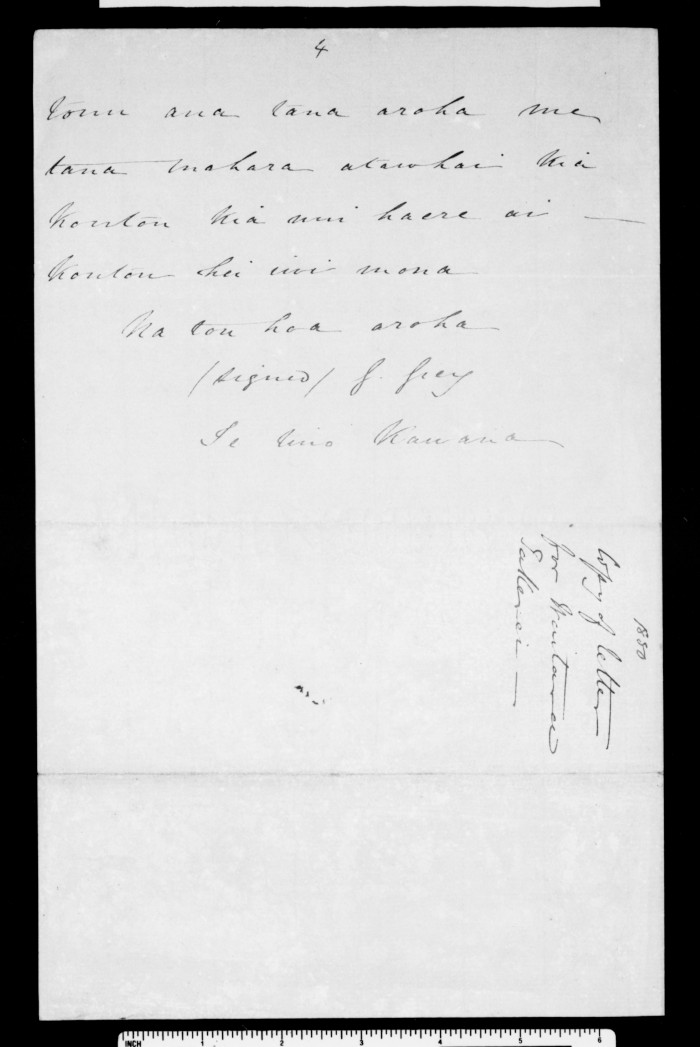 4
tonu ana tana aroha me
tana mahara atawhai kia
Koutou kia nui haere ai —
Koutou hei iwi mona
Na tou hoa aroha
(signed) G. Grey
Te tino Kawana
1850
Copy of letter
for
Takerei —
INCH 1 2 3 4 5 6